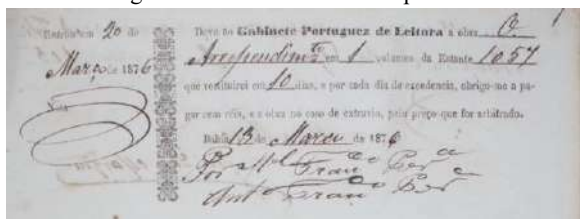 Entrou em 20 de
Março de 1876
Nós
Devo ao Gabinete Portuguez de Leitura a obra O
Arrependimto em 1 volumes da Estante 1057
que restituirei em 10 dias, e por cada dia de excedencia, obrigo-me a pa-
gar cem réis, e a obra no caso de extravio, pelo preço que for arbitrado.
Bahia 13 de Março de 1876
Por Franco Pera
Anto Franco Pera